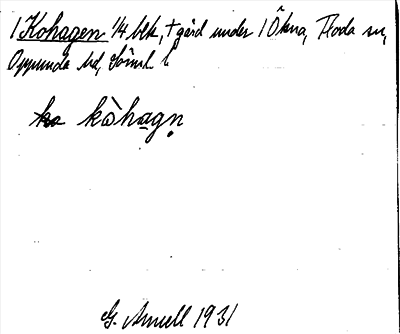 1 Kohagen 1/4 blk, † gård under 1 Ökna, Floda sn,
Oppunda hd, Sörml l
kòhagn̥
G. Amell 1931